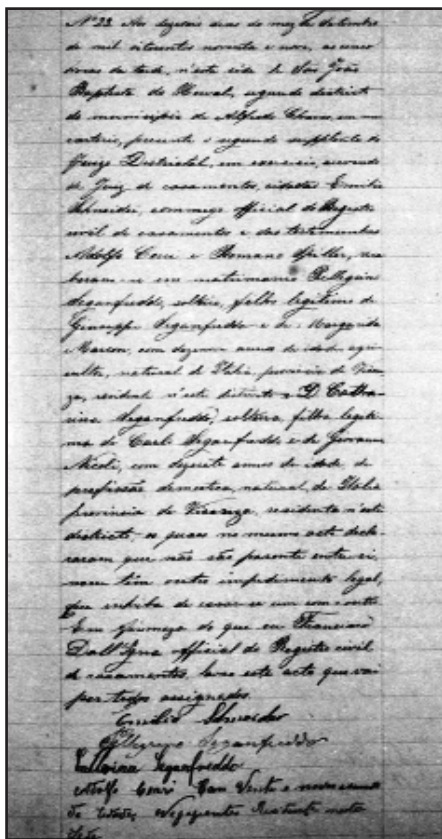 Nº 23 Aos dezeseis dias do mez de Setembro
de mil oitocentos noventa e nove, as cinco
horas da tarde, n'esta séde de São João
Baptista de Nova, segundo districto
do municipio de Alfredo Chaves, em meu
cartorio, presente o segundo supplente do
Juizo Districtal, em exercicio, servindo
de Juiz de casamentos, cidadão Emilio
Schneider, commigo official do Registro
civil de casamentos e das testemunhas
Adolfo Cervi e Romano, rece
beram-se em matrimonio Pellegrino
Seganfreddo, solteiro, filho legitimo de
Giuseppe Seganfreddo e de Margarida
Marcon, com dezenove annos de idade, agri
cultor, natural de Italia, provincia de Vicen
za, residente n'este districto e D. Catha
rina Seganfreddo, solteira, filha legiti
ma de Carlo Seganfreddo e de Giovanna
Nicoli, com dezesete annos de idade, de
profissão domestica, natural, de Italia
provincia de Vicenza, residente n'este
districto, os quaes no mesmo acto decla
raram que não são parente entre si,
nem têm outro impedimento legal,
que inhiba de casar-se um com o outro.
Em firmeza do que eu Francisco
Dall'Igna official do Registro civil
de casamentos, lavro este acto que vai
por todos assignados.
Emilio Schneider
Pellegrino Seganfreddo
Seganfreddo
Adolfo Cervi Com Vinte e nove annos
De idade, Negoziante Residente nesta